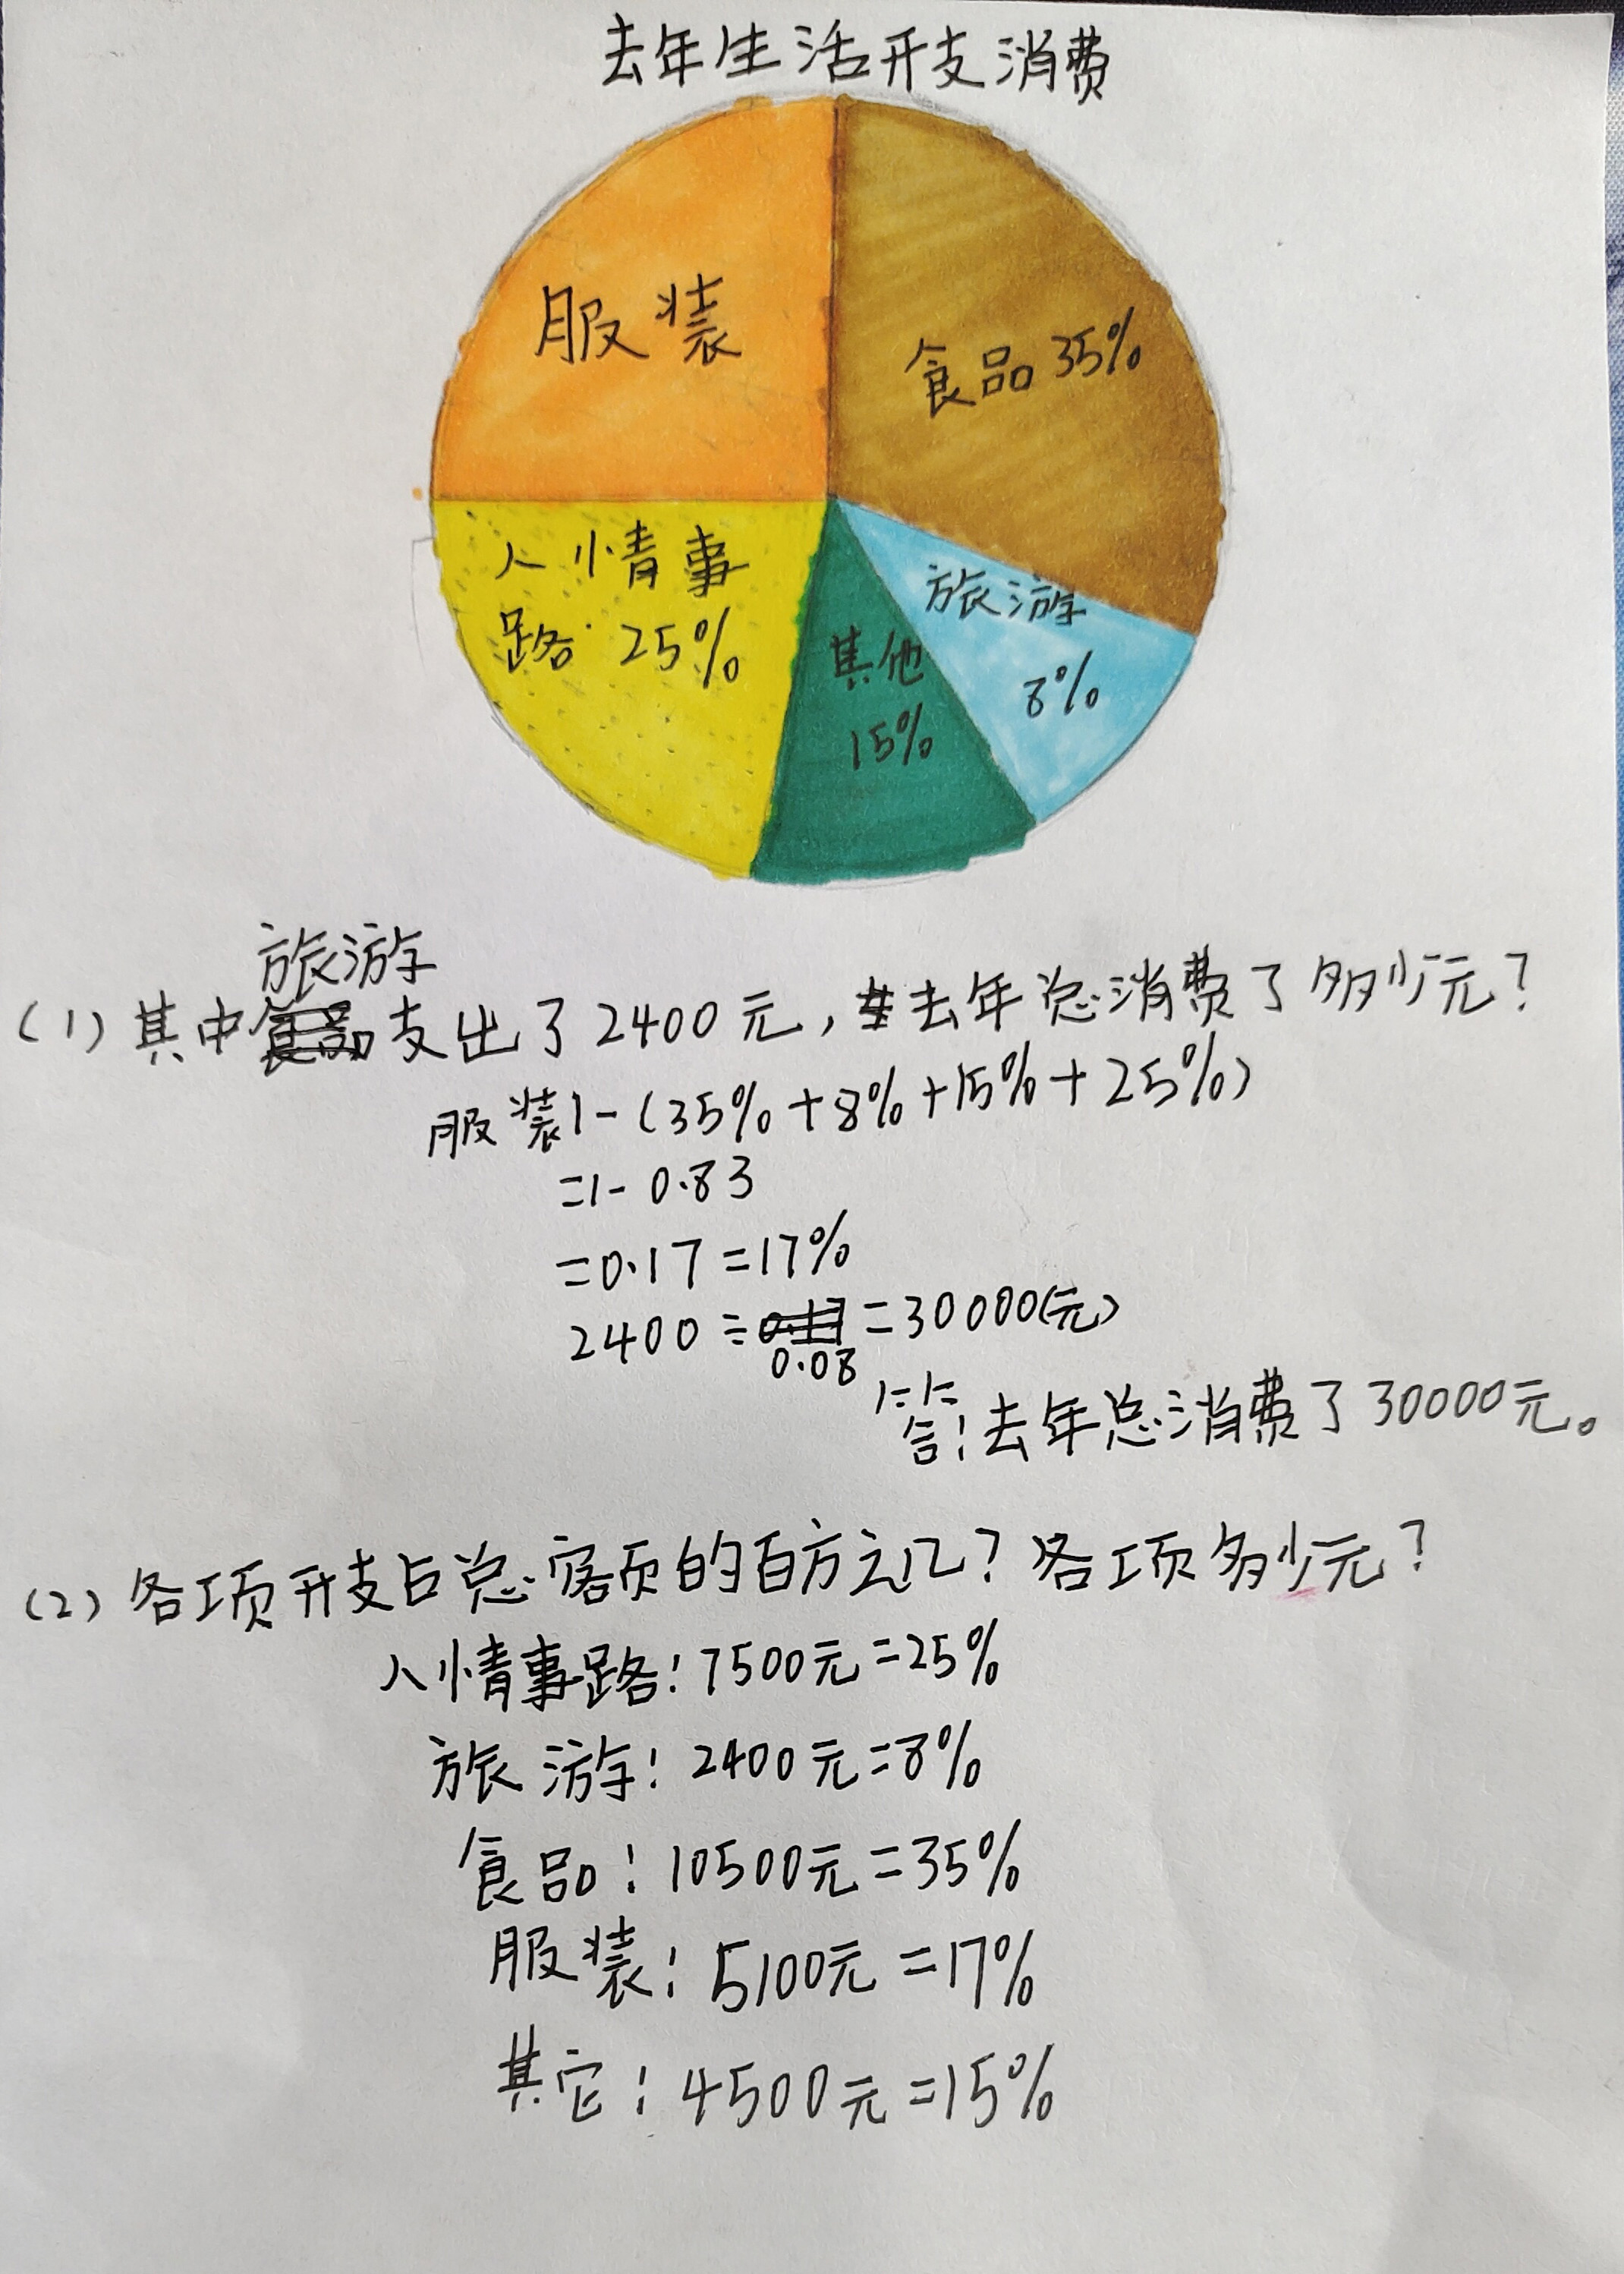 去年生活开支消费
服装
食品35%
人情事
路 25%
其他
15%
旅游
8%
旅游
(1)其中支出了2400元,去年总消费了多少元?
服装1-(35%+8%+15%+25%)
=1-0.83
=0.17=17%
2400÷0.08=30000(元)
答:去年总消费了30000元。
(2)各项开支占总额的百分之几?各项多少元?
人情事路:7500元=25%
旅游:2400元=8%
食品:10500元=35%
服装:5100元=17%
其它:4500元=15%